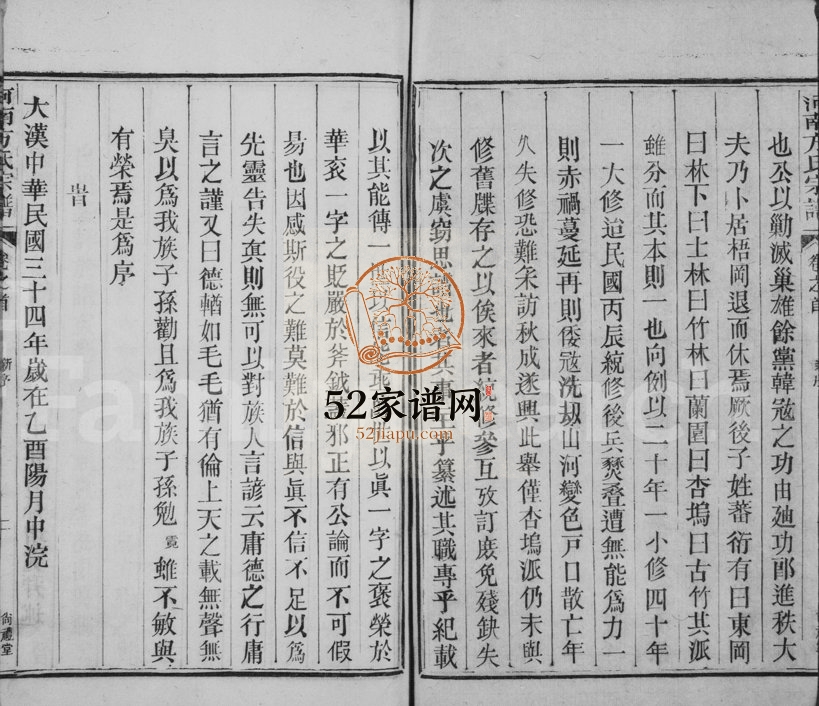 河南方氏宗譜
卷之首
也公以勦滅巢雄餘黨韓寇之功由廸功郎進秩大
夫乃卜居梧岡退而休焉厥後子姓蕃衍有曰東岡
曰林下曰士林曰竹林曰蘭園曰杏塢曰古竹其派
雖分而其本則一也向例以二十年一小修四十年
一大修迨民國丙辰統修後兵燹叠遭無能爲力一
則赤禍蔓延再則倭寇洗刼山河變色戸口散亡年
久失修恐難采訪秋成遂興此舉僅杏塢派仍未與
修舊牒存之以俟來者 修參互攷訂庻免殘缺失
次之虞竊思 也 其事 乎纂述其職專乎紀載
以其能傳一 以信 以眞一字之褒榮於
華衮一字之貶嚴於斧鉞 邪正有公論而不可假
昜也因感斯役之難莫難於信與眞不信不足以爲
先靈告失眞則無可以對族人言諺云庸德之行庸
言之謹又曰德輶如毛毛猶有倫上天之載無聲無
臭以爲我族子孫勸且爲我族子孫勉 霓 雖不敏與
有榮焉是爲序
旹
大漢中華民國三十四年歲在乙酉陽月中浣
河南方氏宗譜
卷之首
新序
二
尙禮堂
52家谱网
52jiapu.com